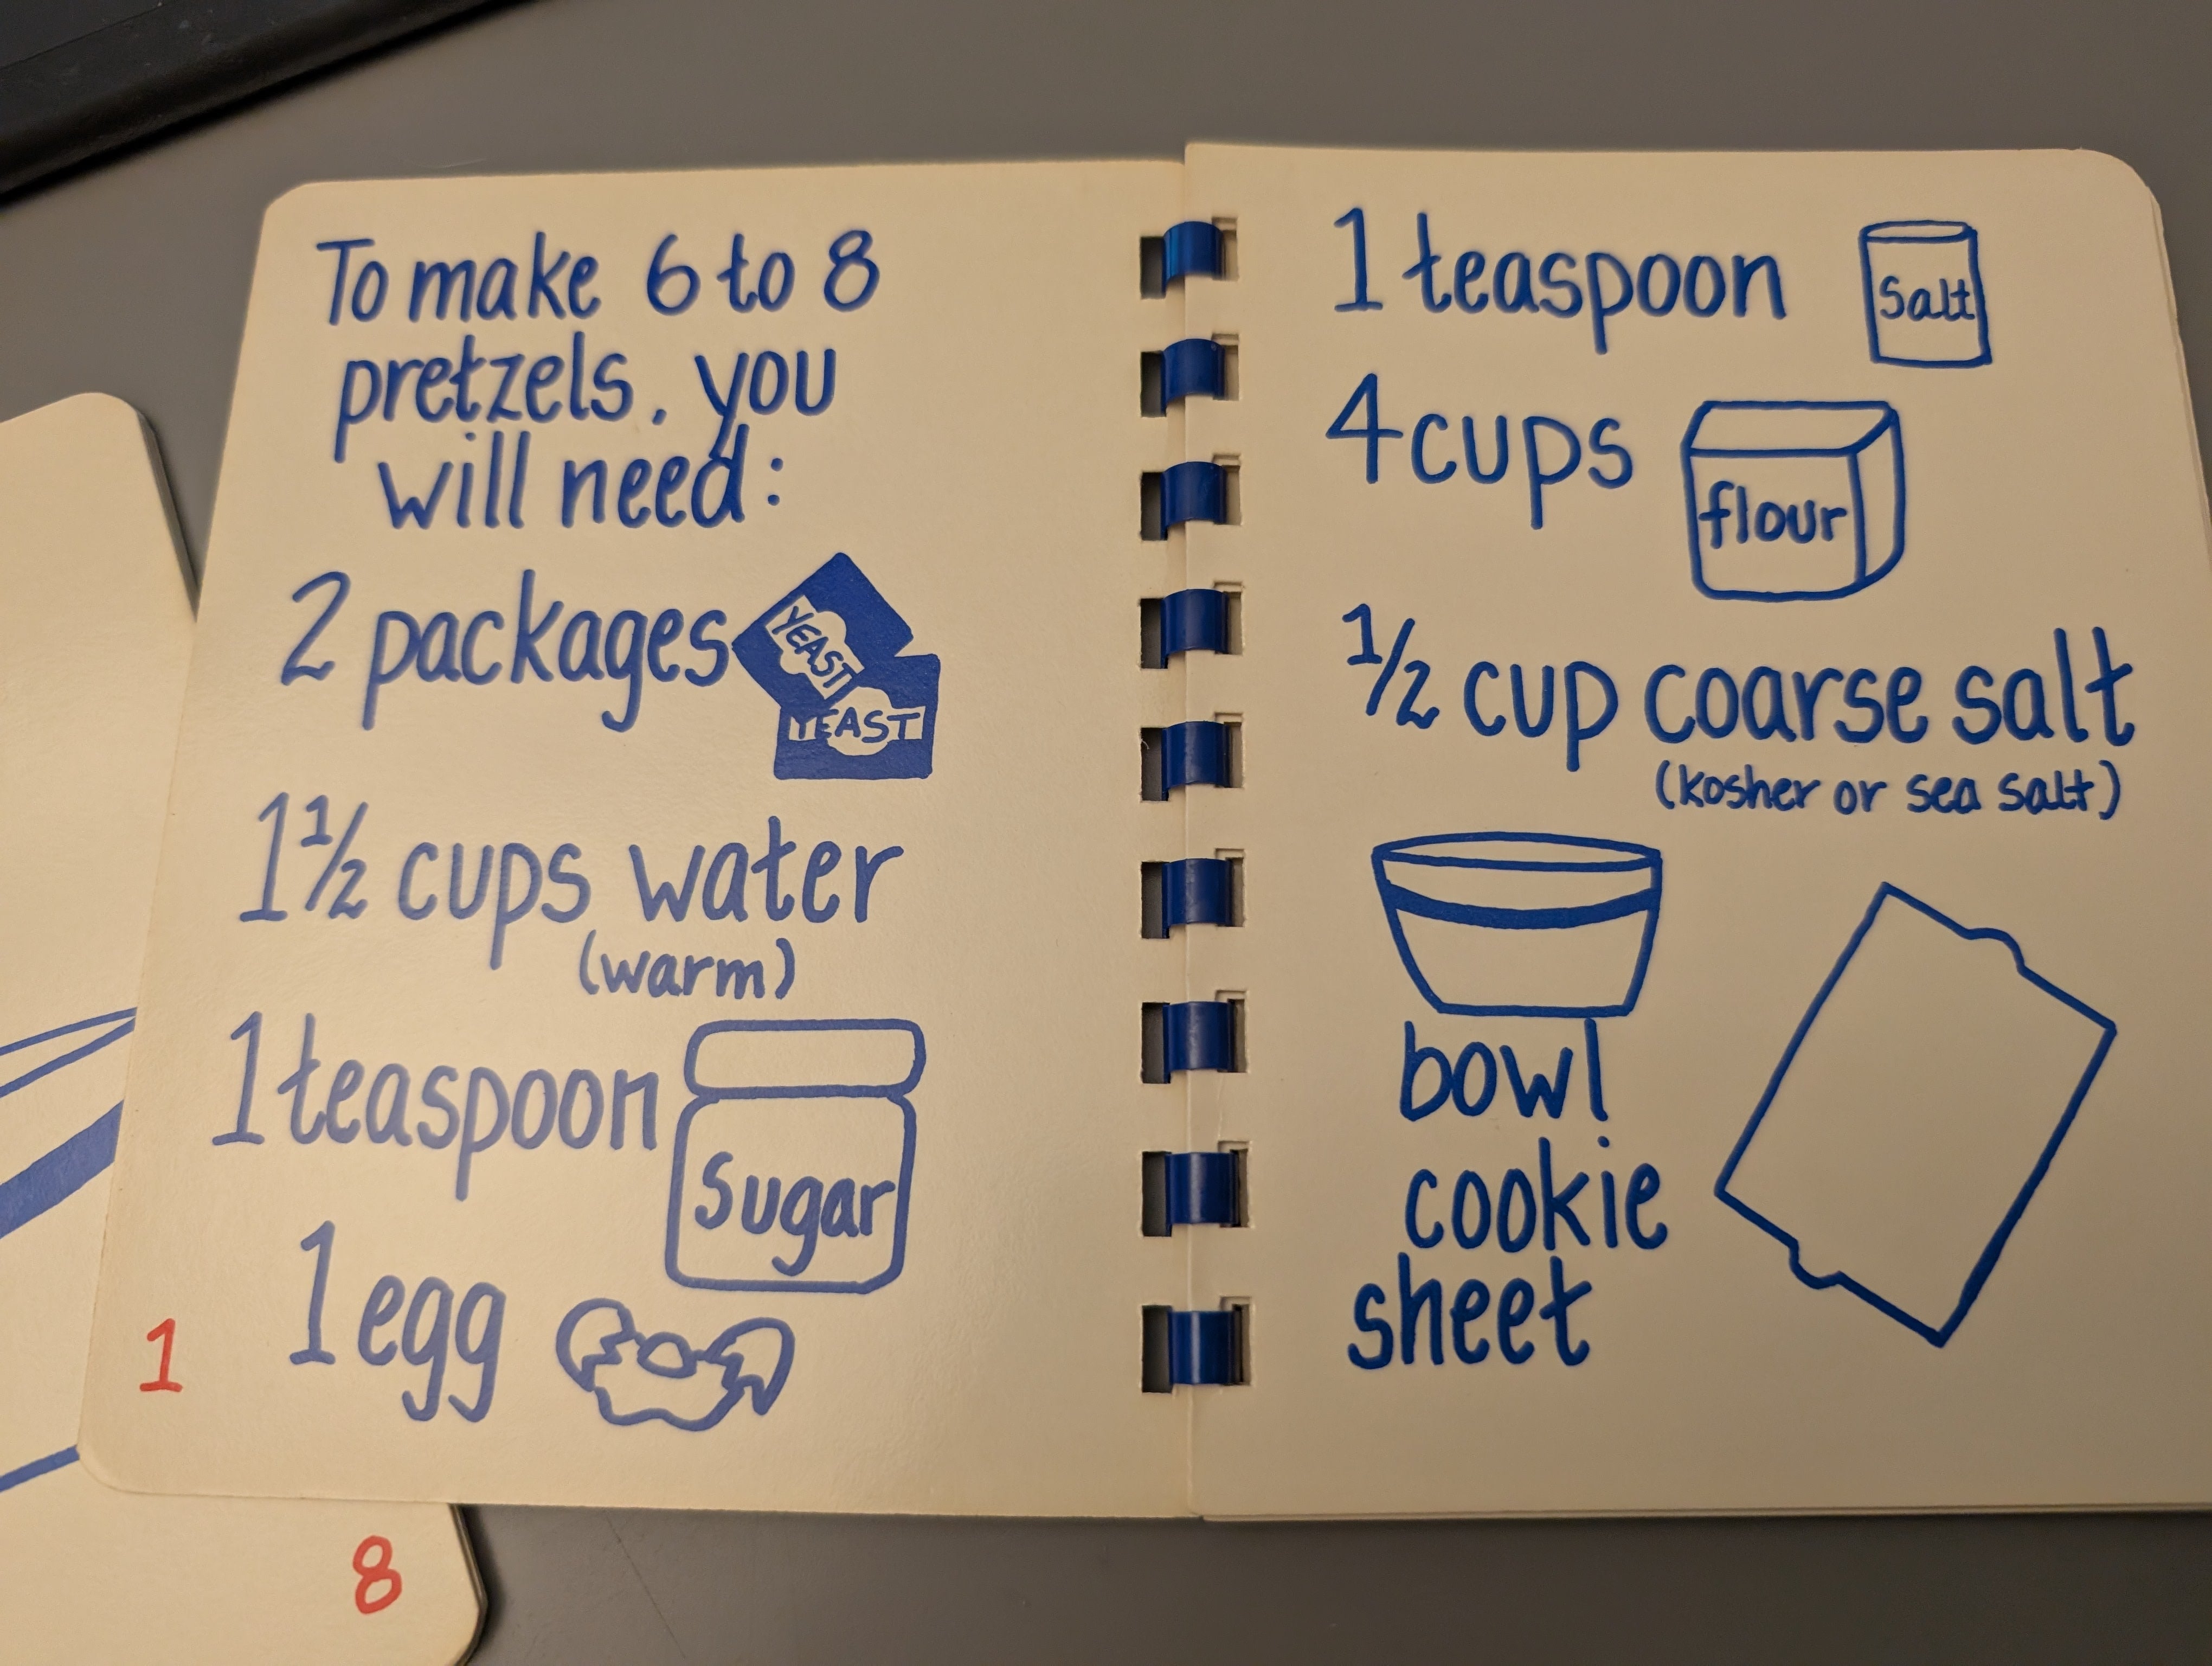 To make 6 to 8
pretzels, you
will need:
2 packages
YEAST
YEAST
1 1/2 cups water
(warm)
1 teaspoon
Sugar
1 egg
1
1 teaspoon
Salt
4 cups
flour
1/2 cup coarse salt
(kosher or sea salt)
bowl
cookie
sheet
8